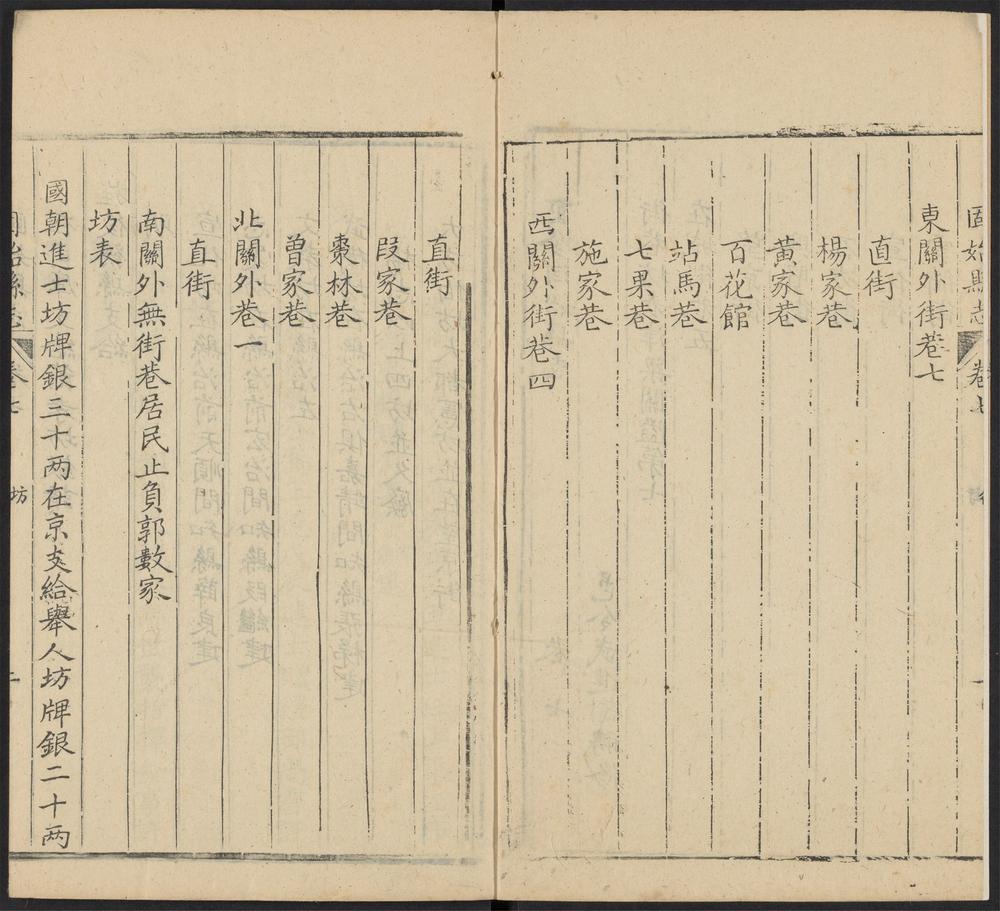 固始縣志 卷七
東關外街巷七
直街
楊家巷
黃家巷
百花館
站馬巷
七果巷
施家巷
西關外街巷四
直街
段家巷
棗林巷
曾家巷
北關外巷一
直街
南關外無街巷居民止負郭數家
坊表
國朝進士坊牌銀三十两在京支給舉人坊牌銀二十两
固始縣志 卷七 坊